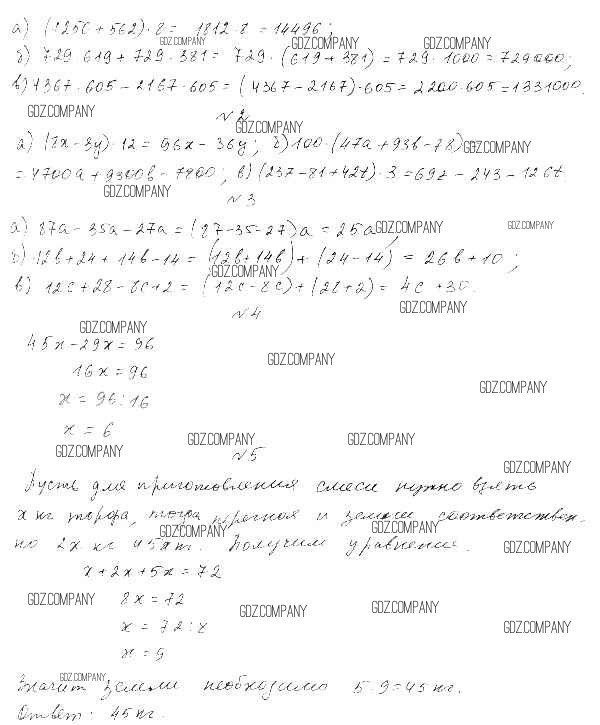 а) (1250 + 562) · 8 = 1812 · 8 = 14496;
GDZ.COMPANY GDZ.COMPANY GDZ.COMPANY
б) 729 · 619 + 729 · 381 = 729 · (619 + 381) = 729 · 1000 = 729000;
в) 4367 · 605 − 2167 · 605 = (4367 − 2167) · 605 = 2200 · 605 = 1331000.
GDZ.COMPANY №2
GDZ.COMPANY
а) (8x − 3y) · 12 = 96x − 36y; 100 · (47a + 93b − 78) =
GDZ.COMPANY
= 4700a + 9300b − 7800; в) (23z − 81 + 42t) · 3 = 69z − 243 − 126t
GDZ.COMPANY
№3
а) 87a − 35a − 27a = (87 − 35 − 27)a = 25a
GDZ.COMPANY GDZ.COMPANY
б) 12b + 24 + 14b − 14 = (12b + 14b) + (24 − 14) = 26b + 10;
GDZ.COMPANY
в) 12c + 28 − 8c + 2 = (12c − 8c) + (28 + 2) = 4c + 30.
GDZ.COMPANY
№4
GDZ.COMPANY
45x − 29x = 96
GDZ.COMPANY
16x = 96
GDZ.COMPANY
x = 96 : 16
x = 6
GDZ.COMPANY GDZ.COMPANY GDZ.COMPANY
№5
GDZ.COMPANY
Пусть для приготовления смеси нужно взять
x кг торфа, тогда и земли соответствен-
GDZ.COMPANY GDZ.COMPANY
но 2x кг и 5x кг. Получим уравнение.
GDZ.COMPANY
x + 2x + 5x = 72
8x = 72
GDZ.COMPANY GDZ.COMPANY GDZ.COMPANY
x = 72 : 8
GDZ.COMPANY
x = 9
GDZ.COMPANY
Значит земли необходимо 5 · 9 = 45 кг.
Ответ: 45 кг.